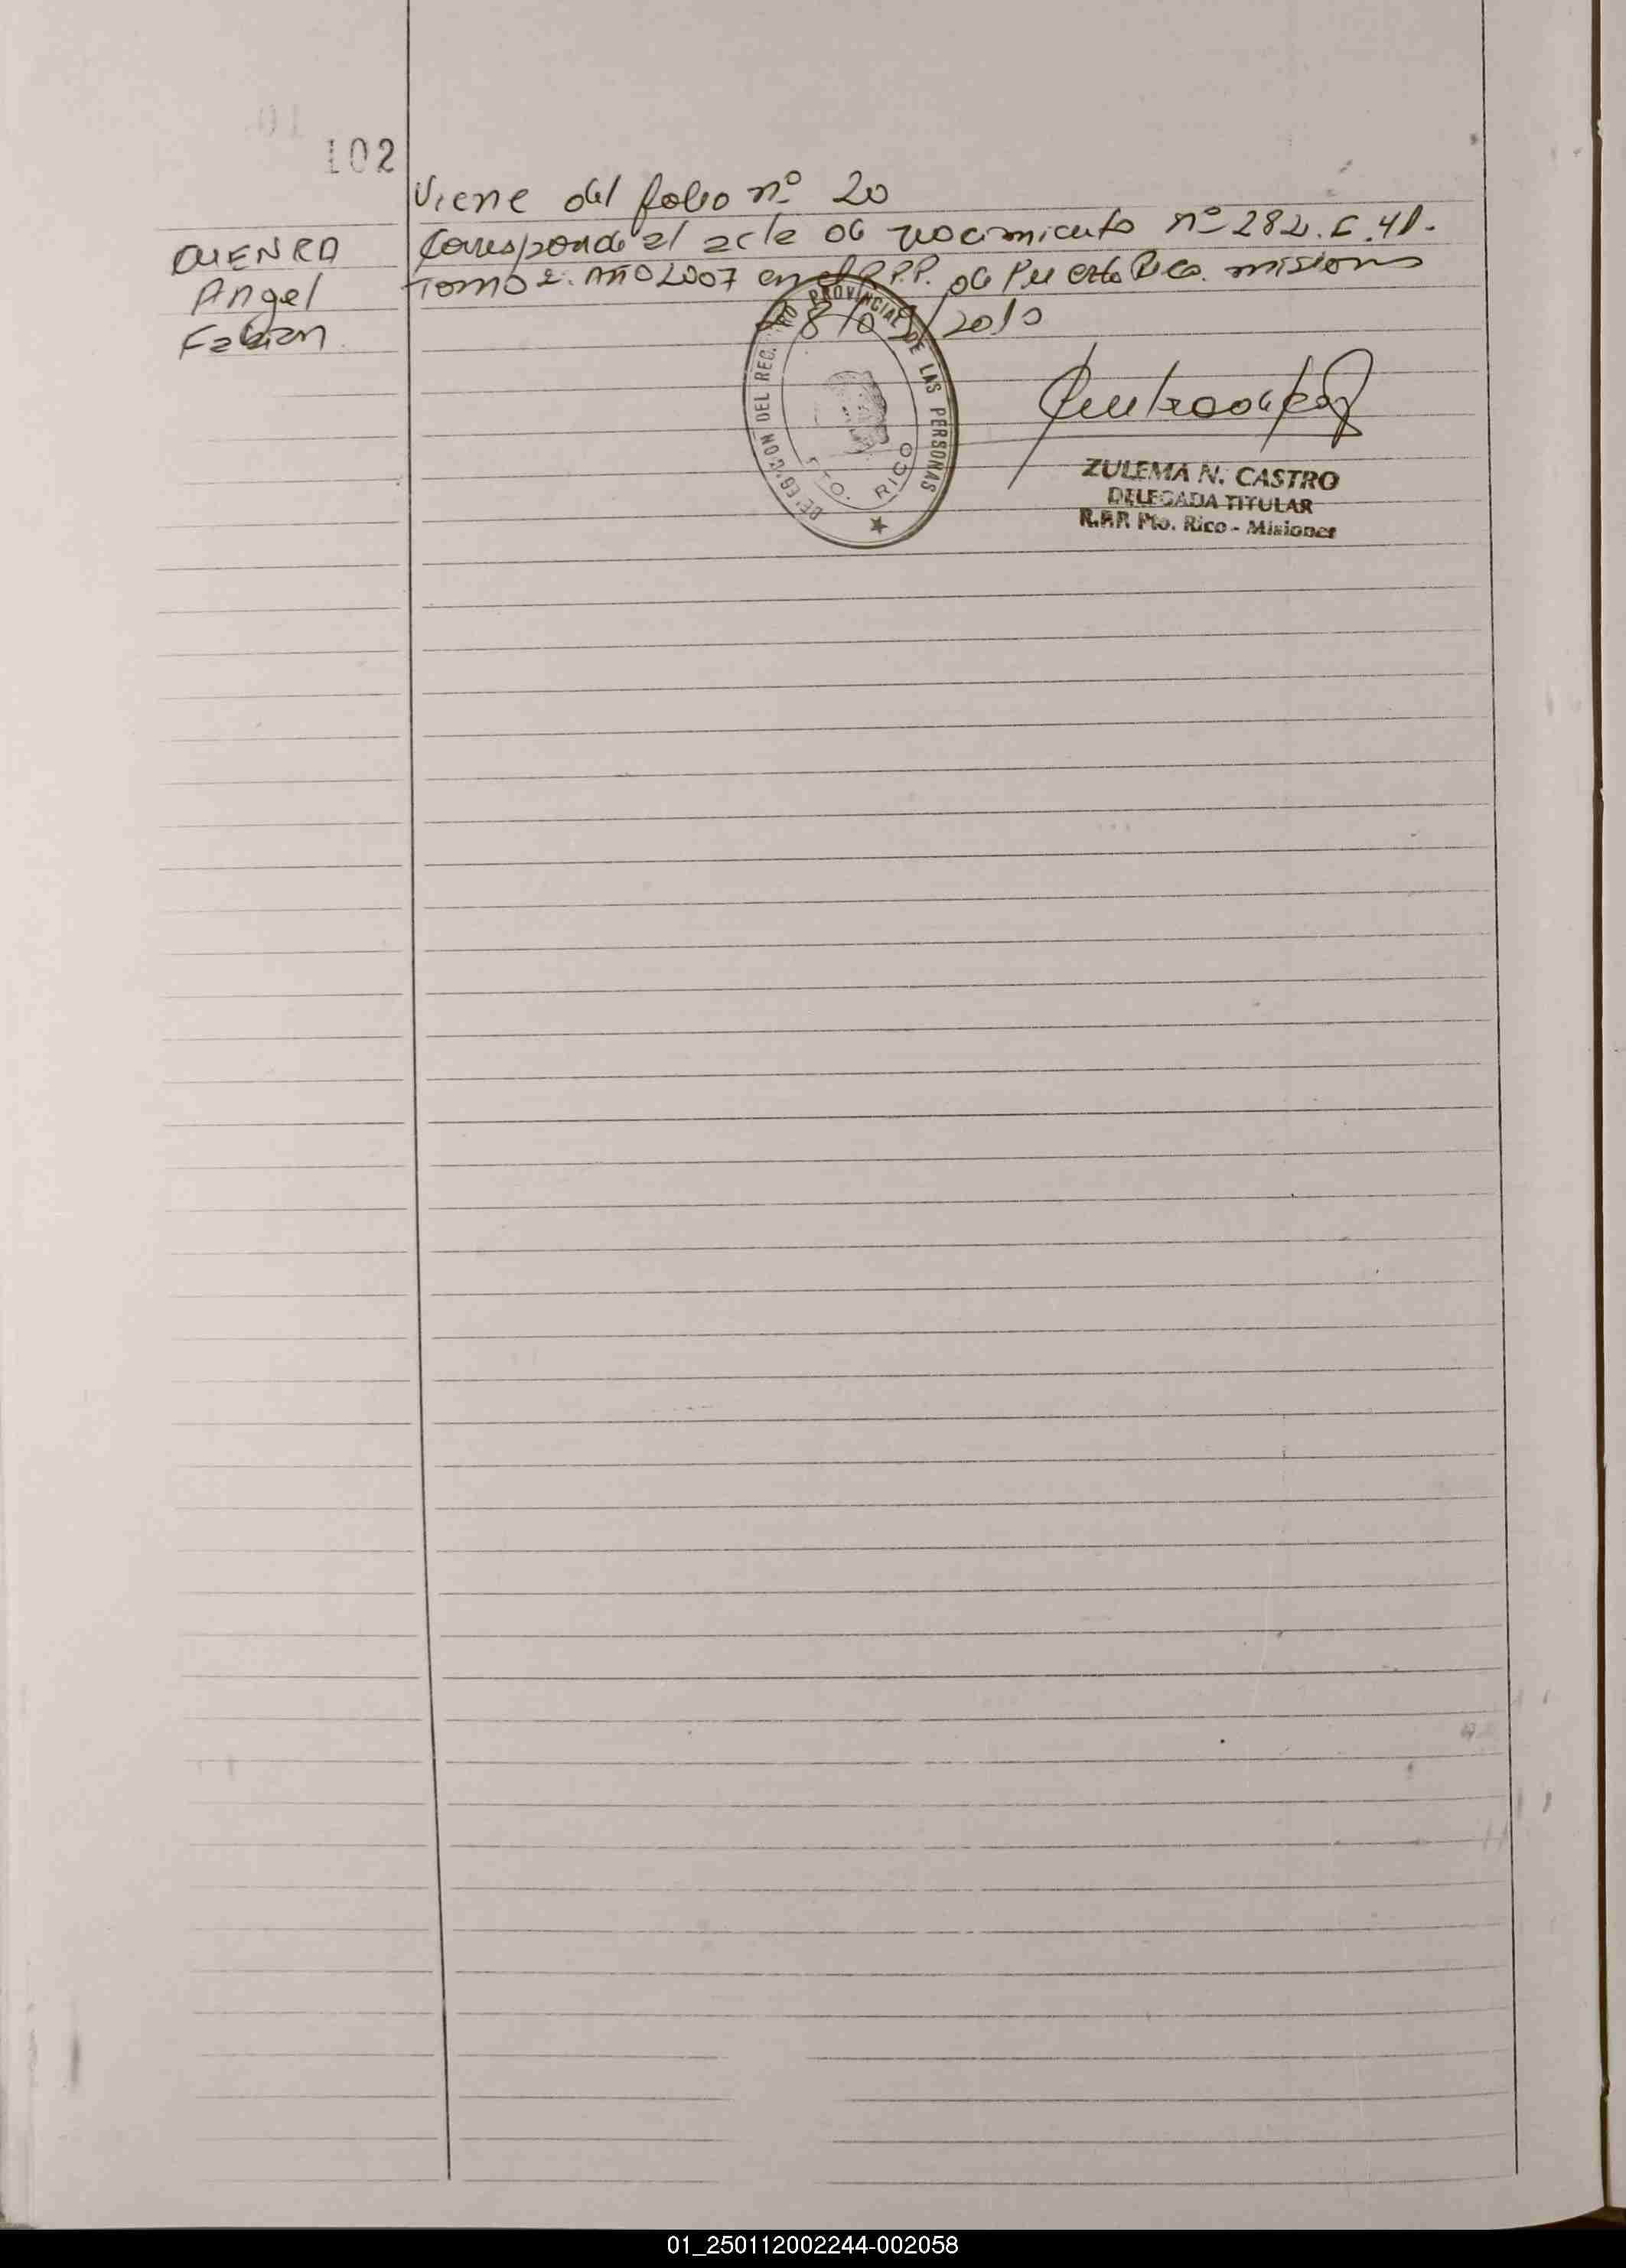 102
Viene del folio nº 20
Angel
Fabian
Corresponde al acta de nacimiento nº 282. F. 41.
Tomo 2. Año 2007 en el R.P.P. de Puerto Rico. misiones
8/09/2010
DELEGACION DEL REG. PROVINCIAL DE LAS PERSONAS
PTO. RICO
ZULEMA N. CASTRO
DELEGADA TITULAR
R.P.P. Pto. Rico - Misiones
01_250112002244-002058